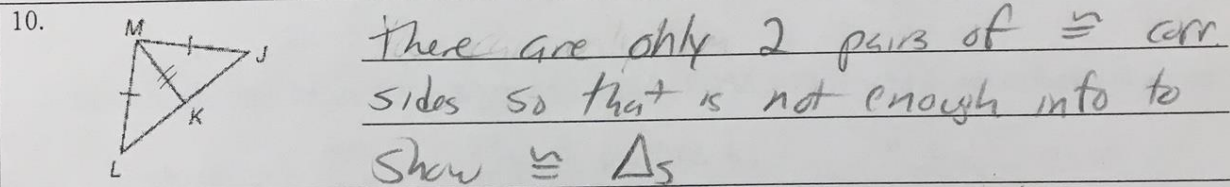 10.
M
J
K
L
There are only 2 pairs of ≅ corr.
sides so that is not enough info to
show ≅ △s